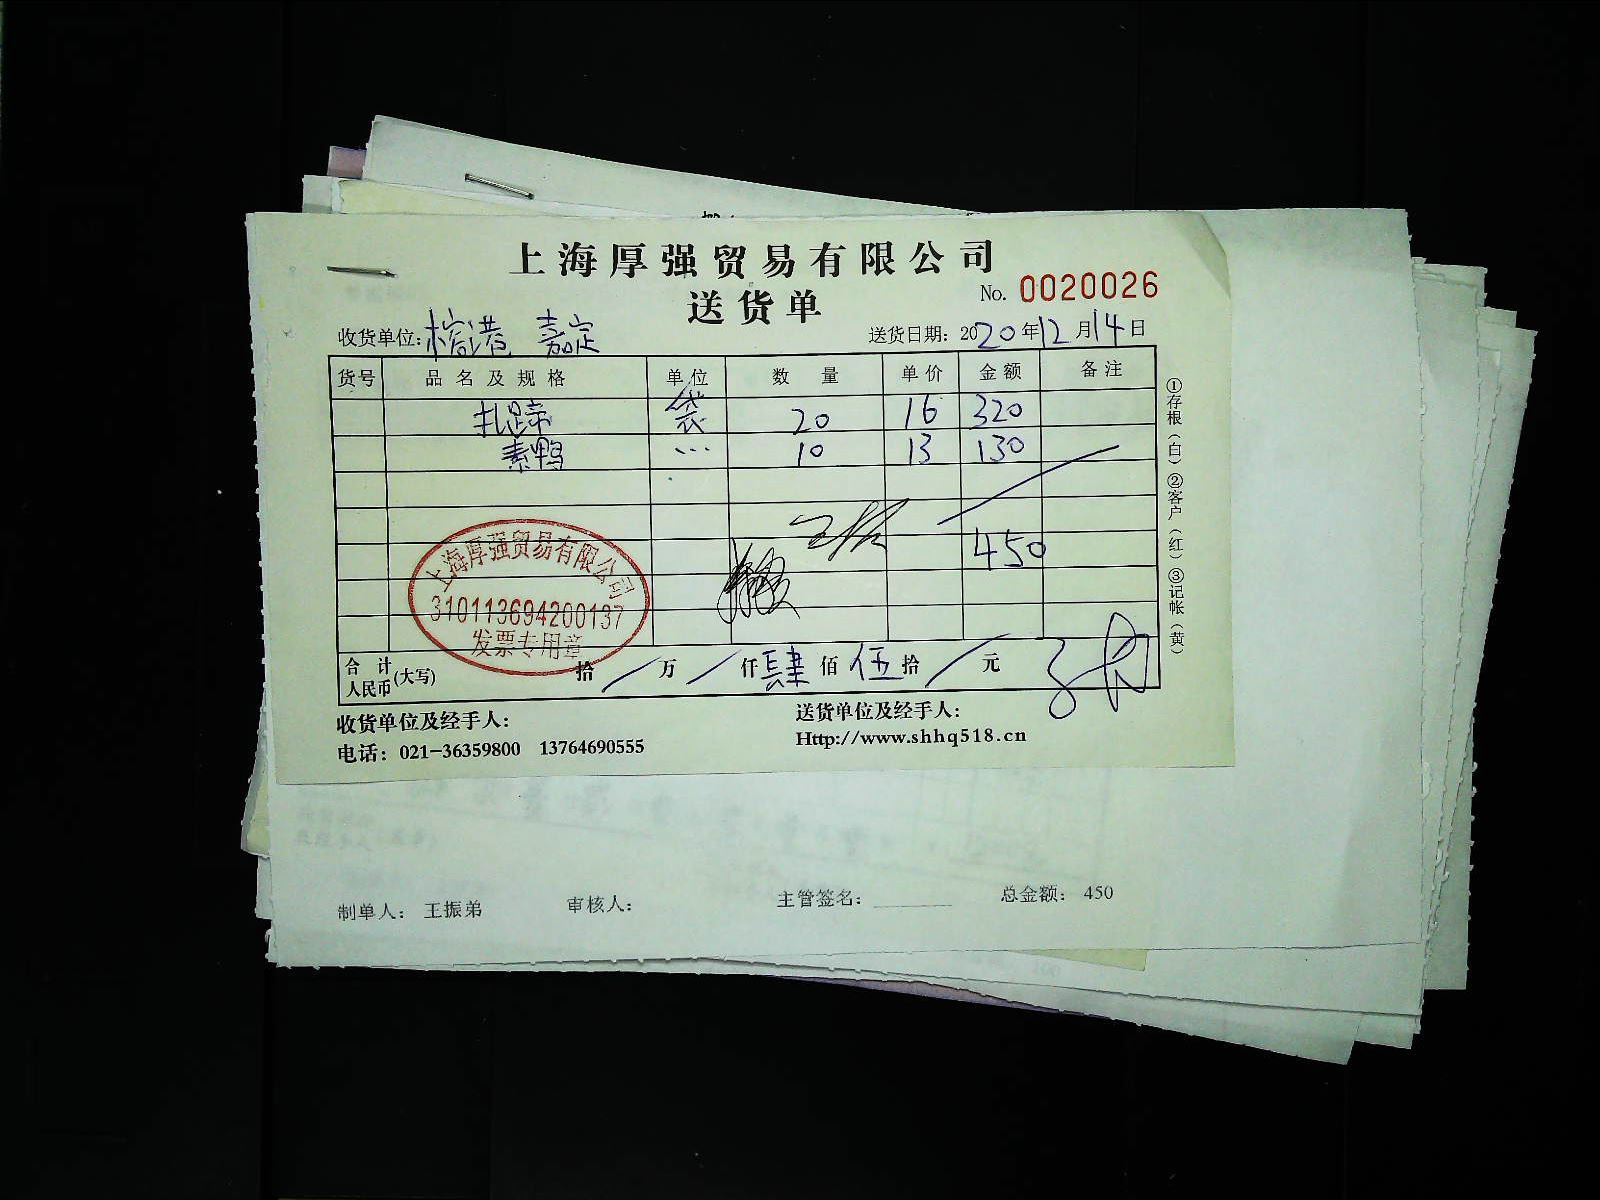 上海厚强贸易有限公司
送货单
No. 0020026
收货单位: 榕港 嘉定
送货日期: 2020年12月14日
货号 品名及规格 单位 数量 单价 金额 备注
扎蹄 袋 20 16 320
素鸭 … 10 13 130
450
上海厚强贸易有限公司
310113694200137
发票专用章
合计人民币(大写) 拾 万 仟 肆 佰 伍 拾 元
收货单位及经手人:
送货单位及经手人:
电话: 021-36359800 13764690555
Http://www.shhq518.cn
①存根(白)②客户(红)③记帐(黄)
制单人: 王振弟 审核人: 主管签名: 总金额: 450